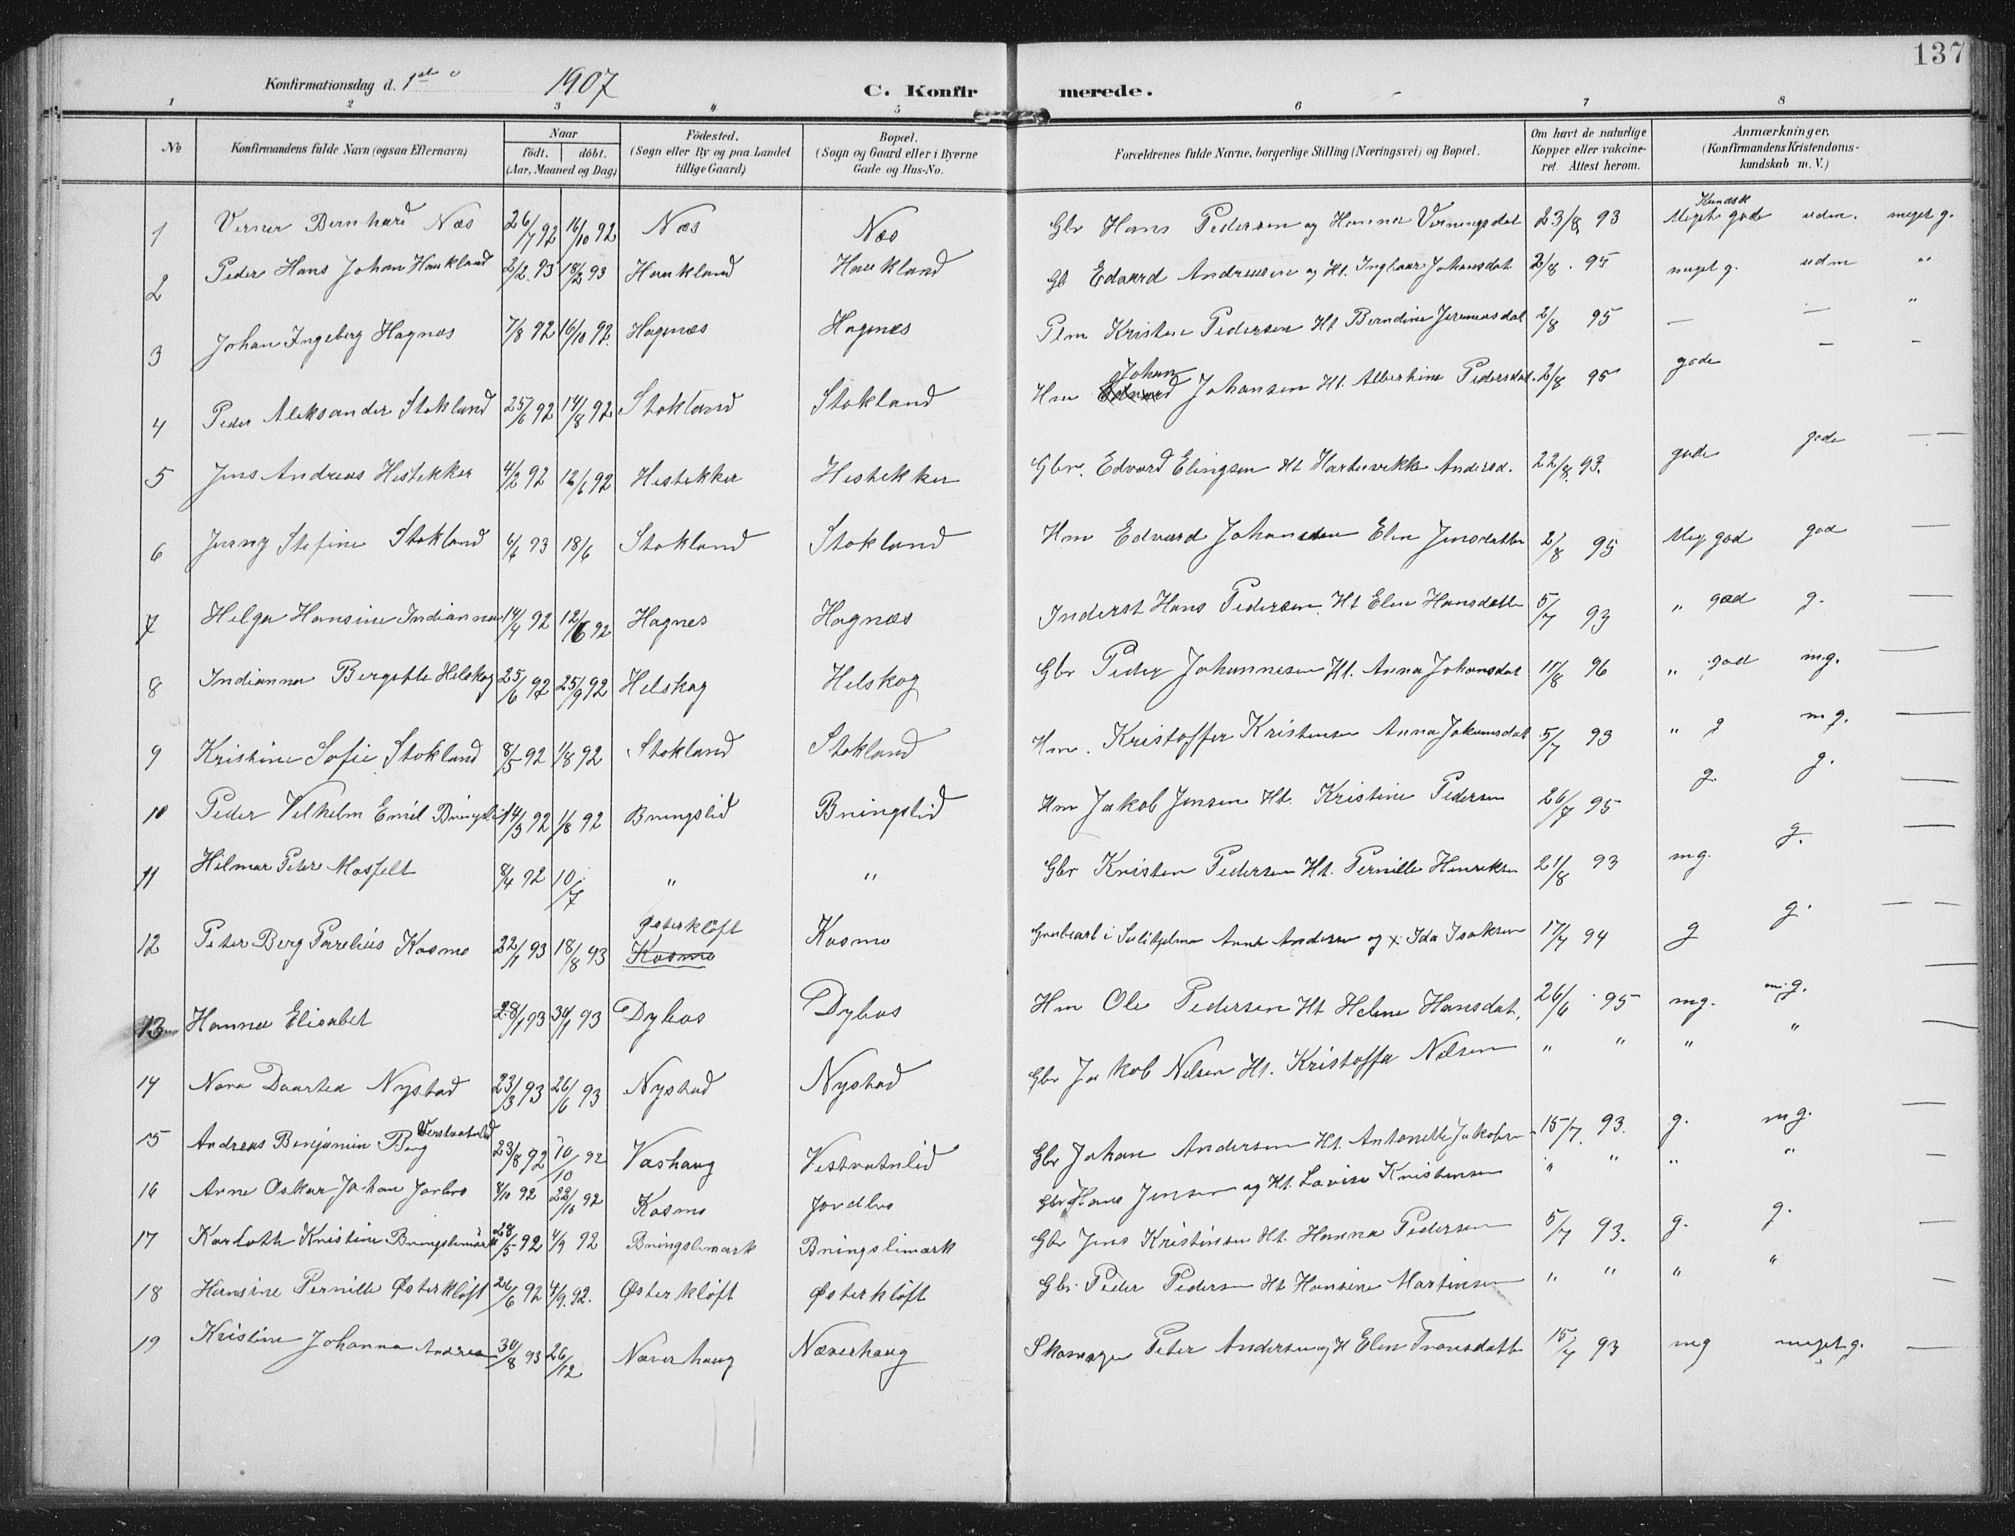 137
Konfirmationsdag d. 1ste 1907 C. Konfirmerede.
1 2 3 4 5 6 7 8
No
Konfirmandens fulde Navn (ogsaa Efternavn)
Naar
født. døbt.
(Aar, Maaned og Dag)
Fødested.
(Sogn eller By og paa Landet
tillige Gaard)
Bopæl.
(Sogn og Gaard eller i Byerne
Gade og Hus-No.
Forældrenes fulde Navne, borgerlige Stilling (Næringsvei) og Bopæl.
Om havt de naturlige
Kopper eller vakcine-
ret. Attest herom.
Anmærkninger.
(Konfirmandens Kristendoms-
kundskab m. V.)
1 Verner Bernhard Næs 26/7 92 16/10 92 Næs Næs Gbr Hans Pedersen og Hanna Verningsdat 23/8 93 Kundsk Meget gode udm. meget g.
2 Peder Hans Johan Haukland 2/2. 93 18/2 93 Haukland Haukland Gb Edvard Andreasen og Ht. Johansdat 2/8. 95 meget g. udm "
3 Johan Ingeberg Hagnæs 7/8 92 16/10 92. Hagnæs Hagnæs Plm Kristen Pedersen Ht Berndine Jeremiasdat 2/8 95 — — "
4 Peder Aleksander Stokland 25/6 92 14/8 92 Stokland Stokland Hm Johan Johansen Ht. Albertine Pedersdat. 2/8 95 gode — -
5 Jens Andreas Hestekker 4/2 92 12/6 92 Hestekker Hestekker Gbr. Edvard Elingsen Ht Andersd. 22/8. 93. gode gode —
6 Stefine Stokland 6/6 93 18/6 Stokland Stokland Hm Edvard Johansen Elen Jensdatter 2/8 95 Meg god god —
7 Helga Hansine Indianna 14/4 92 12/6 92 Hagnes Hagnæs Inderst Hans Pedersen. Ht Elen Hansdatte 5/7 93 " god g. —
8 Indianna Bergette Helskog 25/6 92 25/9 92 Helskog Helskog Gbr Peder Johannesen Ht. Anna Johansdat 11/8 96 " god m.g. —
9 Kristine Sofie Stokland 8/5 92 1/8 92 Stokland Stokland Hm. Kristoffer Kristensen Anna Johansdat 5/7 93 " g m g. —
10 Peder Vilhelm Emil Bringsli 14/3 92 1/8 92 Bringslid Bringslid Hm Jakob Jensen Ht. Kristine Pedersen 26/7 95 g. g. —
11 Hilmar Peter Mosfelt 8/4 92 10/7 " " Gbr Kristen Pedersen Ht. Pernille Henriksen 21/8 93 mg. g. —
12 Peter Berg Parelius Kosmo 22/1 93 18/8 93 Østerkløft Kosmo Kosmo i Sulitjelma Anders og x Ida Isaksen 17/7 94 g g. — —
13 Hanna Elisabet 28/1 93 30/1 93 Dybos Dybos Hm Ole Pedersen Ht Helene Hansdat. 26/6 95 mg. m.g. —
14 Nora Daartea Nystad 23/3 93 26/6 93 Nystad Nystad Gbr Jakob Nelsen Ht. Kristoffa Nelsen " " " " —
15 Andreas Benjamin Berg Vestvatnlid 23/8 92 10/10 92 Vashaug Vestvatnlid Gbr Johan Andersen Ht. Antonette Jakobsen 15/7. 93. g. mg. —
16 Arne Oskar Johan Jorbro 4/10 92 22/10 92 Kosmo Jordbro Gbr Hans Jensen og Ht. Lovise Kristensen " " " " —
17 Karloth Kristine Bringslimark 28/5 92 4/9 92 Bringslimark Bringslimark Gbr Jens Kristensen Ht. Hanna Pedersen 5/7 93. g. g. —
18 Hansine Pernille Østerkløft 26/6 92 4/9. 92. Østerkløft Østerkløft Gbr. Peder Pedersen Ht Hansine Martinsen " " " " —
19 Kristine Johanna Andrea 30/8 93 26/12 Næverhaug Næverhaug Skomager Peter Andersen og H Elen Tronsdatt 15/7 93 mg meget g. —